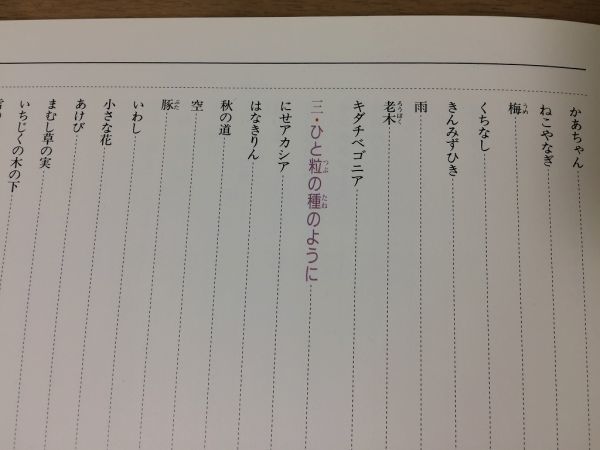 かあちゃん
ねこやなぎ
梅
くちなし
きんみずひき
雨
老木
キダチベゴニア
三・ひと粒の種のように
にせアカシア
はなきりん
秋の道
空
豚
いわし
小さな花
あけび
まむし草の実
いちじくの木の下